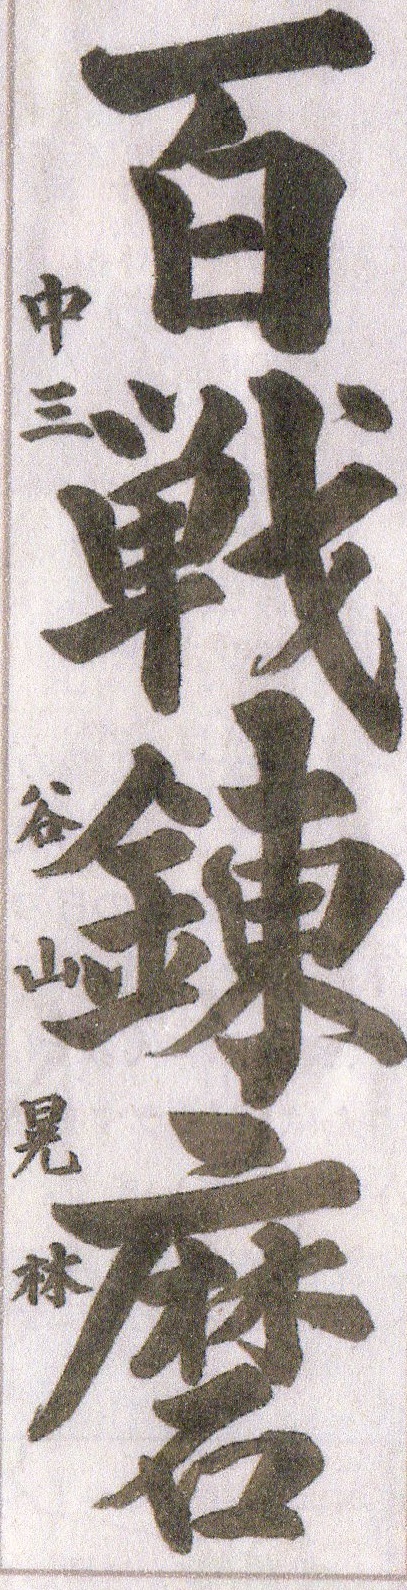 百戦錬磨
中三 谷山晃林